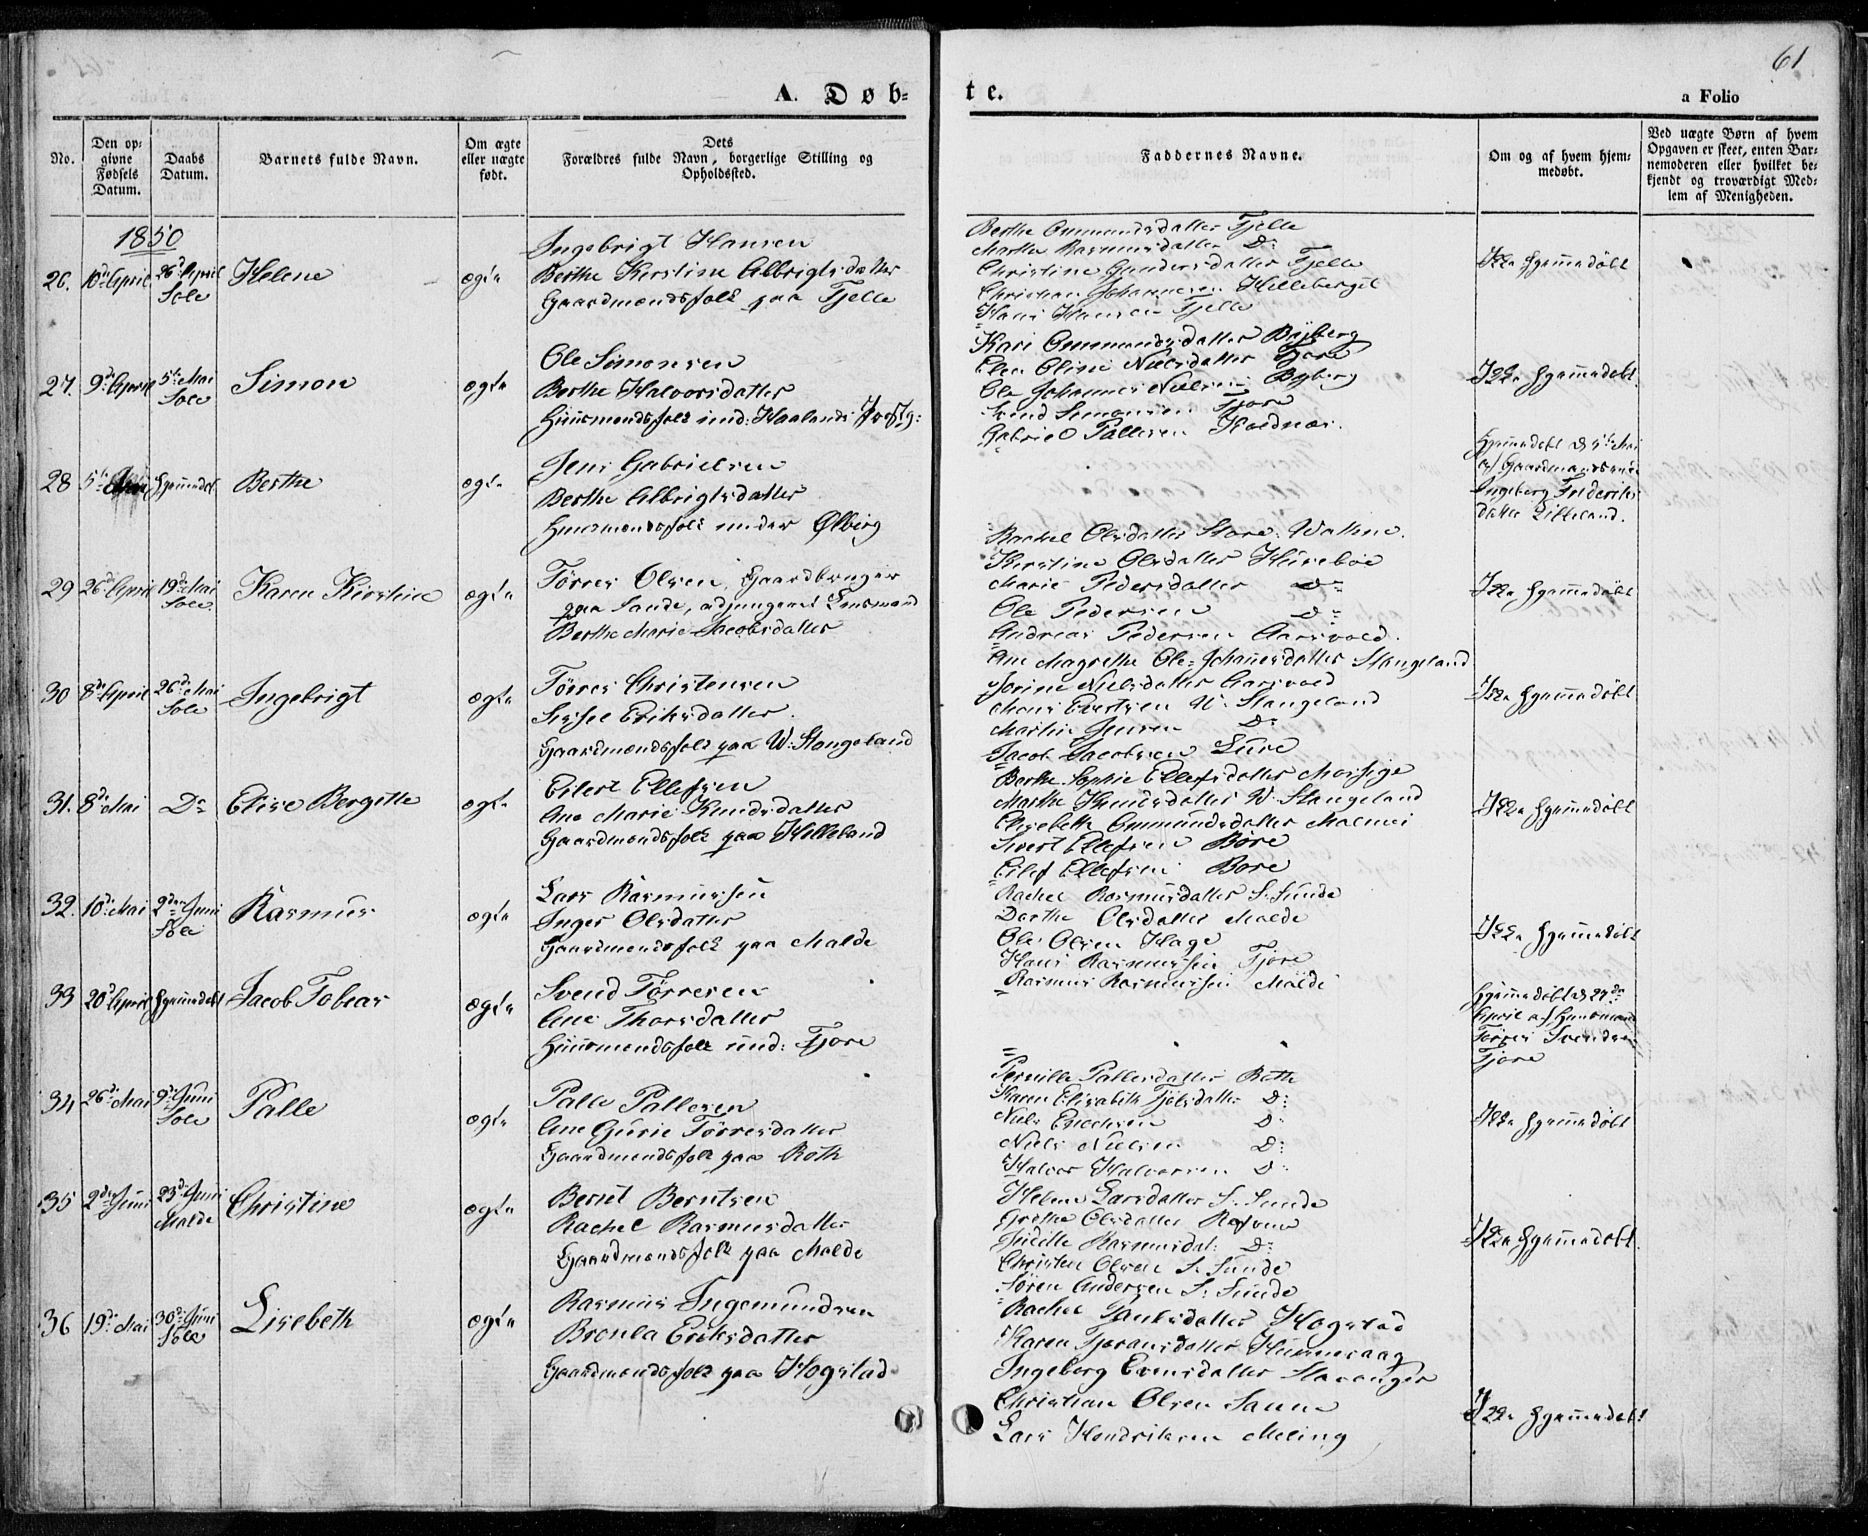 61
A. Døb-
te.
a Folio
No.
Den op-
givne
Fødsels
Datum.
Daabs
Datum.
Barnets fulde Navn.
Om ægte
eller uægte
født.
Dets
Forældres fulde Navn, borgerlige Stilling og
Opholdssted.
Faddernes Navne.
Om og af hvem hjem-
medøbt.
Ved uægte Børn af hvem
Opgaven er skeet, enten Bar-
nemoderen eller hvilket be-
kjendt og troværdigt Med-
lem af Menigheden.
1850
26. 10de April 26de April Sole Helene ægte
Ingebrigt Hansen
Berthe Kirstine Albrigtsdatter
Gaardmandsfolk paa Tjelle
Berthe Ommundsdatter Tjelle
Martha Rasmusdatter Do
Christine Gundersdatter Tjelle
Christian Johannesen
Hans Hansen Tjelle
Ikke hjemmedøbt
27. 9de April 5te Mai Sole Simon ægte
Ole Simonsen
Berthe Halvorsdatter
Huusmandsfolk und: Haalands
Kari Ommundsdatter Byberg
Elen Oline Nielsdatter Tjore
Ole Johannes Nielsen Byberg
Svend Simonsen Tjore
Gabriel Pallesen
Ikke hjemmedøbt
28 5te hjemmedøbt Berthe ægte
Jens Gabrielsen
Berthe Albrigtsdatter
Huusmandsfolk under Ølberg
Hjemmedøbt d 5te Mai
af Gaardmands
Ingeborg Frederiks
datter
29 26de April 19de Mai Sole Karen Kirstine ægte
Tørres Olsen, Gaardbruger
paa Sande, adjungeret Lensmand
Berthe Marie Jacobsdatter
Rachel Olsdatter Store Wathne.
Kirstine Olsdatter
Marie Pedersdatter Do
Ole Pedersen Do
Andreas Pedersen Aarsvold.
Ikke hjemmedøbt
30 8de April 26de Mai Sole Ingebrigt ægte
Tørres Christensen
Sissel Eriksdatter.
Gaardmandsfolk paa W: Stangeland
Ane Magrethe Ole-Johannesdatter Stangeland
Jorine Nielsdatter Aarsvold
Mons Evertsen W. Stangeland
Martin Jensen Do
Jacob Jacobsen Lure
Ikke hjemmedøbt
31. 8de Mai Do Elise Bergitte ægte
Eilert Ellefsen
Ane Marie Knudsdatter
Gaardmandsfolk paa Helleland
Berthe Sophie Ellefsdatter Mossige
Marthe Knudsdatter W. Stangeland
Elisabeth Ommundsdatter Malmei
Sivert Ellefsen Bore
Eilef Ellefsen Bore
Ikke hjemmedøbt
32. 10de Mai 2den Juni Sole Rasmus ægte
Lars Rasmussen
Inger Olsdatter
Gaardmandsfolk paa Malde
Rachel Rasmusdatter S. Sunde
Dorthe Olsdatter Malde
Ole Olsen Hage
Hans Rasmussen Tjore
Rasmus Rasmussen Malde
Ikke hjemmedøbt
33 20de April Hjemmedøbt Jacob Tobias ægte
Svend Tørresen
Ane Thorsdatter
Huusmandsfolk und: Tjore
Hjemmedøbt d 27de
April af Huusmand
Tørres Svendsen
Tjore
34 26de Mai 9de Juni Sole Palle ægte
Palle Pallesen
Ane Gurie Tørresdatter
Gaardmandsfolk paa Roth
Pernille Pallesdatter Roth
Karen Elisabeth Do
Niels Do
Niels Nielsen Do
Halvor Halvorsen Do
Ikke hjemmedøbt
35 2den Juni 23de Juni Malde Christine ægte
Berent Berntsen
Rachel Rasmusdatter
Gaardmandsfolk paa Malde
Helene Larsdatter S: Sunde
Grethe Olsdatter Refsnes
Rasmusdat: Do
Christen Olsen S. Sunde
Søren Andersen S. Sunde
Ikke hjemmedøbt.
36 19de Mai 30de Juni Sole Lisebeth ægte
Rasmus Ingemundsen
Bronla Eriksdatter
Gaardmandsfolk paa Hogstad
Rachel Hogstad
Karen Tjøransdatter Hummeraag
Ingeborg Stavanger
Christian Olsen Sanne
Lars Hendriksen Meling
Ikke hjemmedøbt